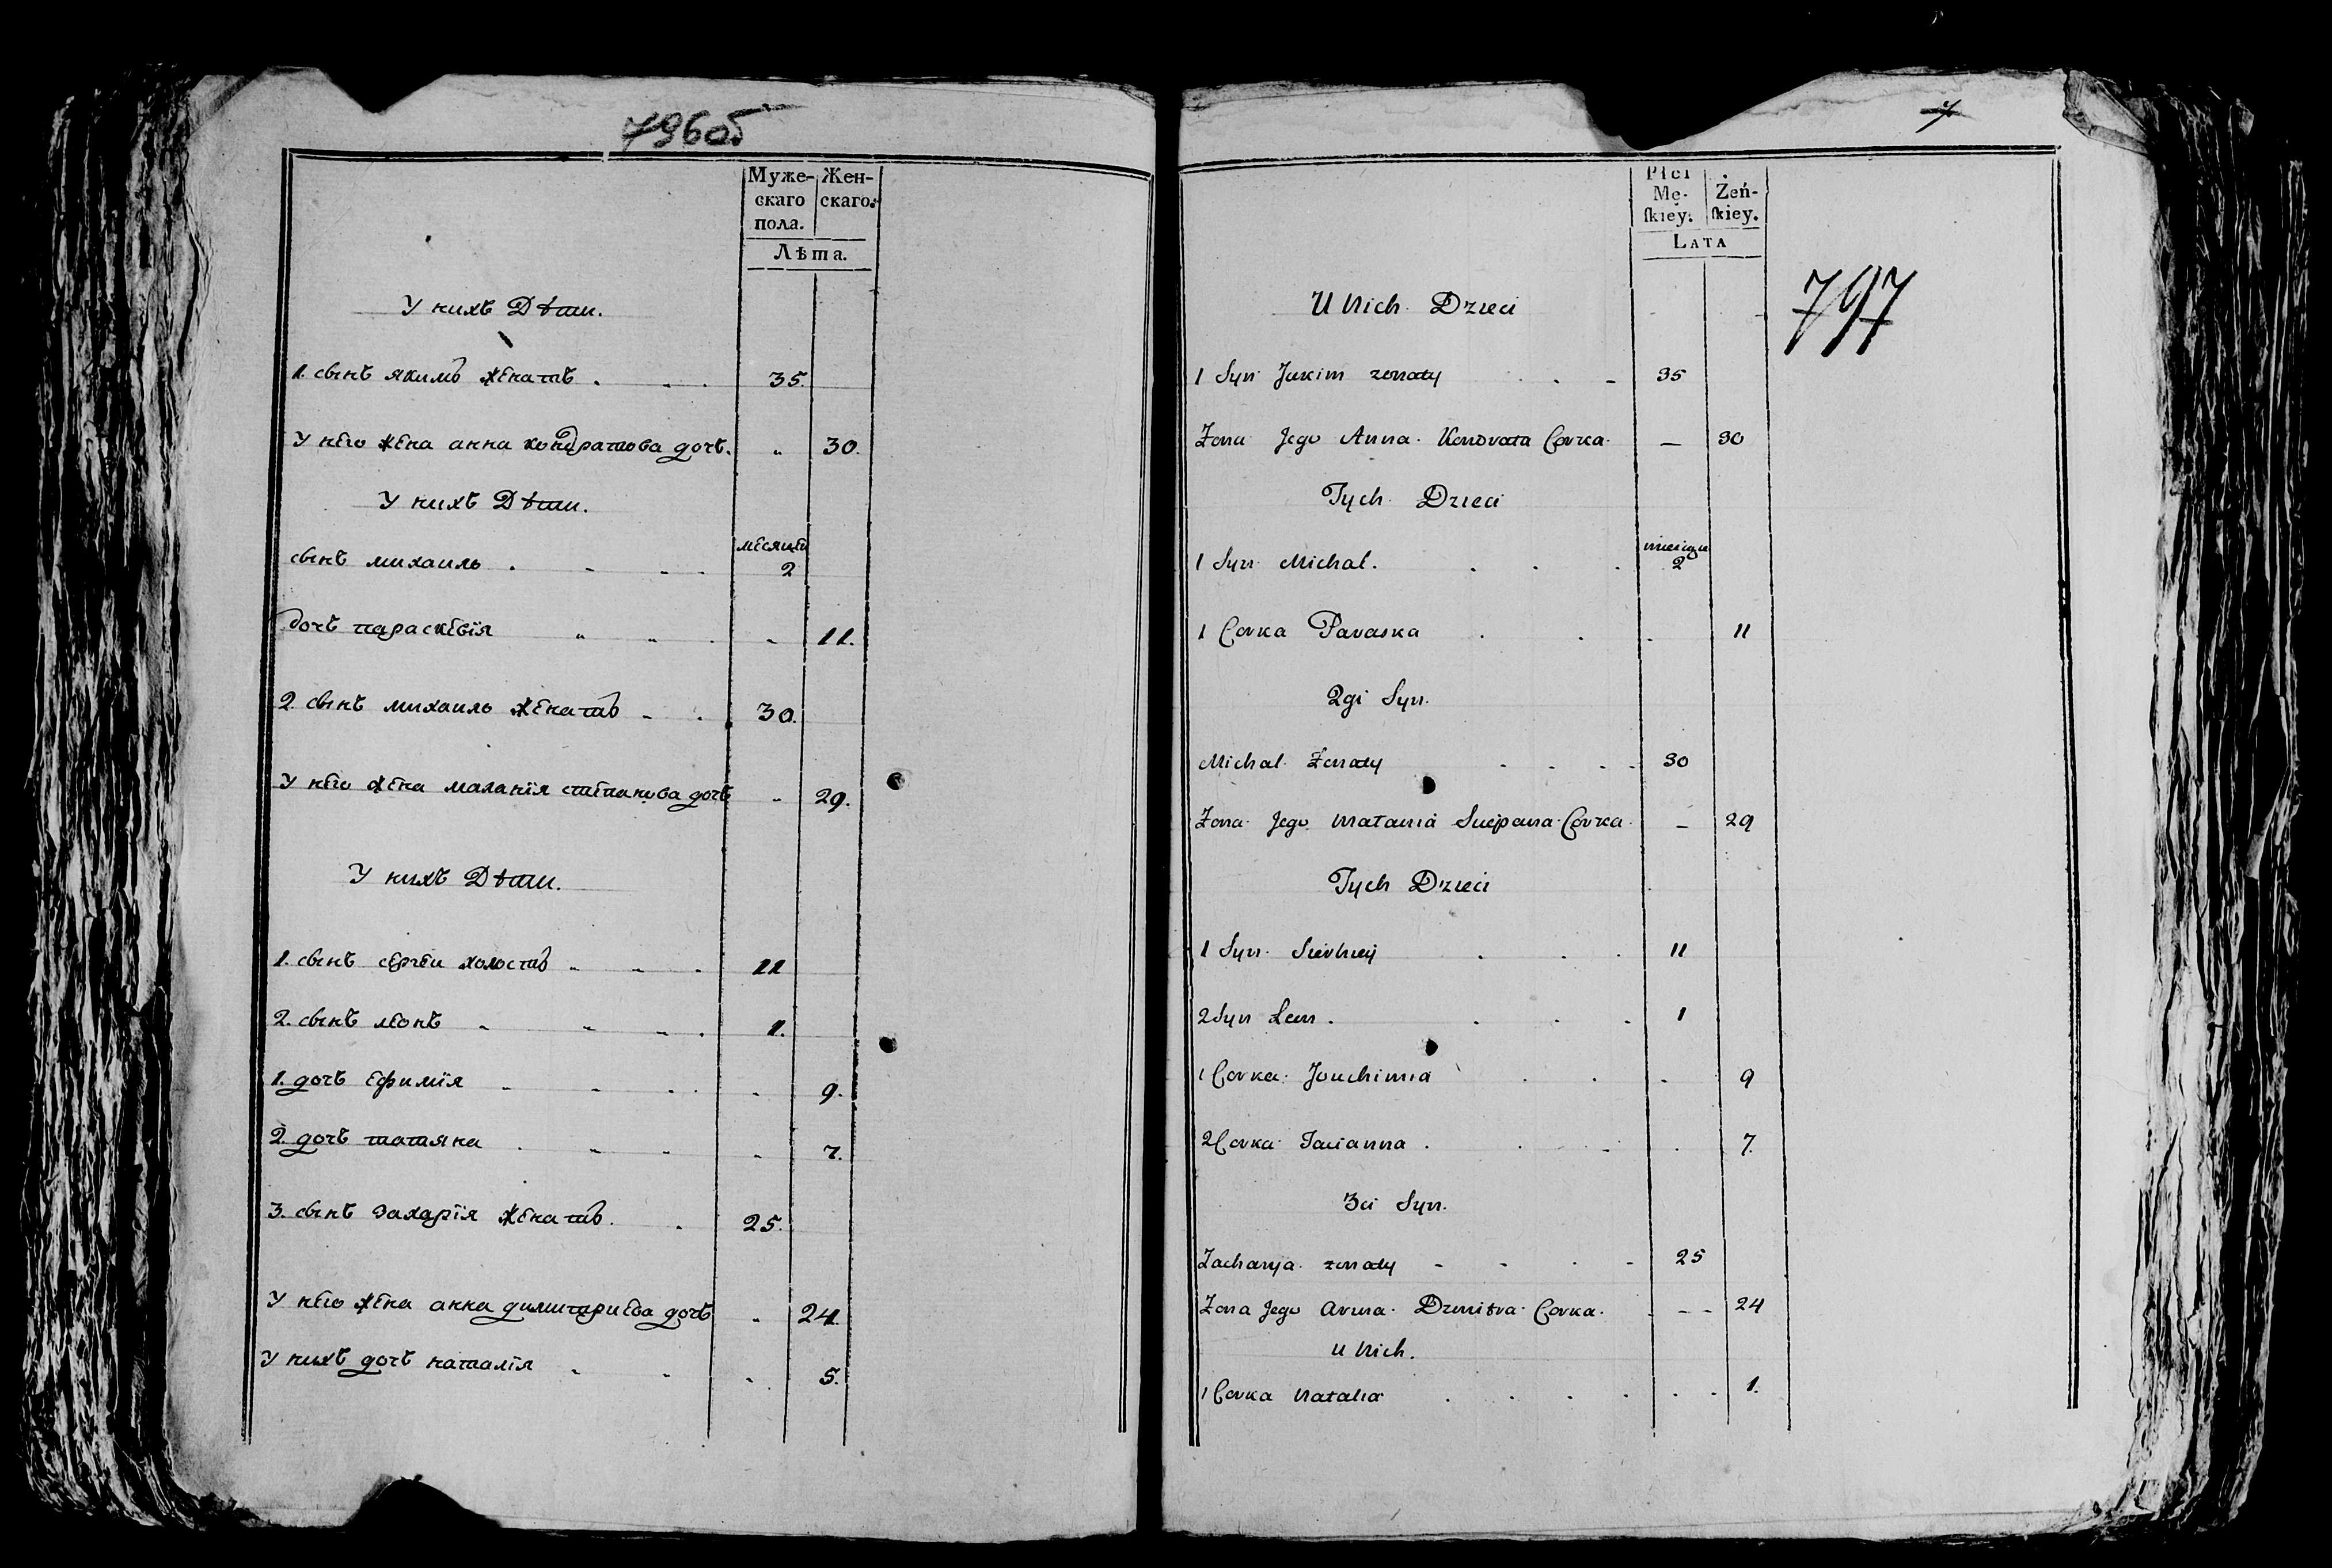 796об
Муже-
скаго
пола.
Жен-
скаго.
Лѣта.
У нихъ Дѣти.
1. сынъ якимъ женатъ . . . 35.
У него жена анна кондратова дочь. „ 30.
У нихъ Дѣти.
месяцы
сынъ михаилъ . - . . 2
дочь параскевїя „ „ . „ 11.
2. сынъ михаилъ женатъ - . 30.
У него жена маланїя степанова дочь „ 29.
У нихъ Дѣти.
1. сынъ сергеи холостъ „ - . 11
2. сынъ леонъ „ „ „ . 1.
1. дочь ефимїя „ „ . . „ 9.
2. дочь татяна . „ „ „ 7.
3. сынъ захарїя женатъ. . 25.
У него жена анна димитриева дочь „ 24.
У нихъ дочь наталїя „ „ „ 5.
7
Płci
Mę-
ſkiey.
Żeń-
ſkiey.
LATA
797
U Nich Dzieci
1 Syn Jakim zonaty . . - 35
Zona Jego Anna Kondrata Corka — 30
Tych Dzieci
1 Syn Michal . . . . 2
1 Corka Paraska . . . 11
2gi Syn.
Michal Zonaty . . . - 30
Zona Jego Matania Sciepana Corka — 29
Tych Dzieci
1 Syn Sierhiey . . . 11
2 Syn Leon . . . . 1
1 Corka Jouchimia . . . 9
2 Corka Tacianna . . . . 7.
3ci Syn.
Zacharyja zonaty - - . - 25
Zona Jego Anna Dzmitra Corka. - - - 24
U Nich.
1 Corka Natalia . . . . . . 1.